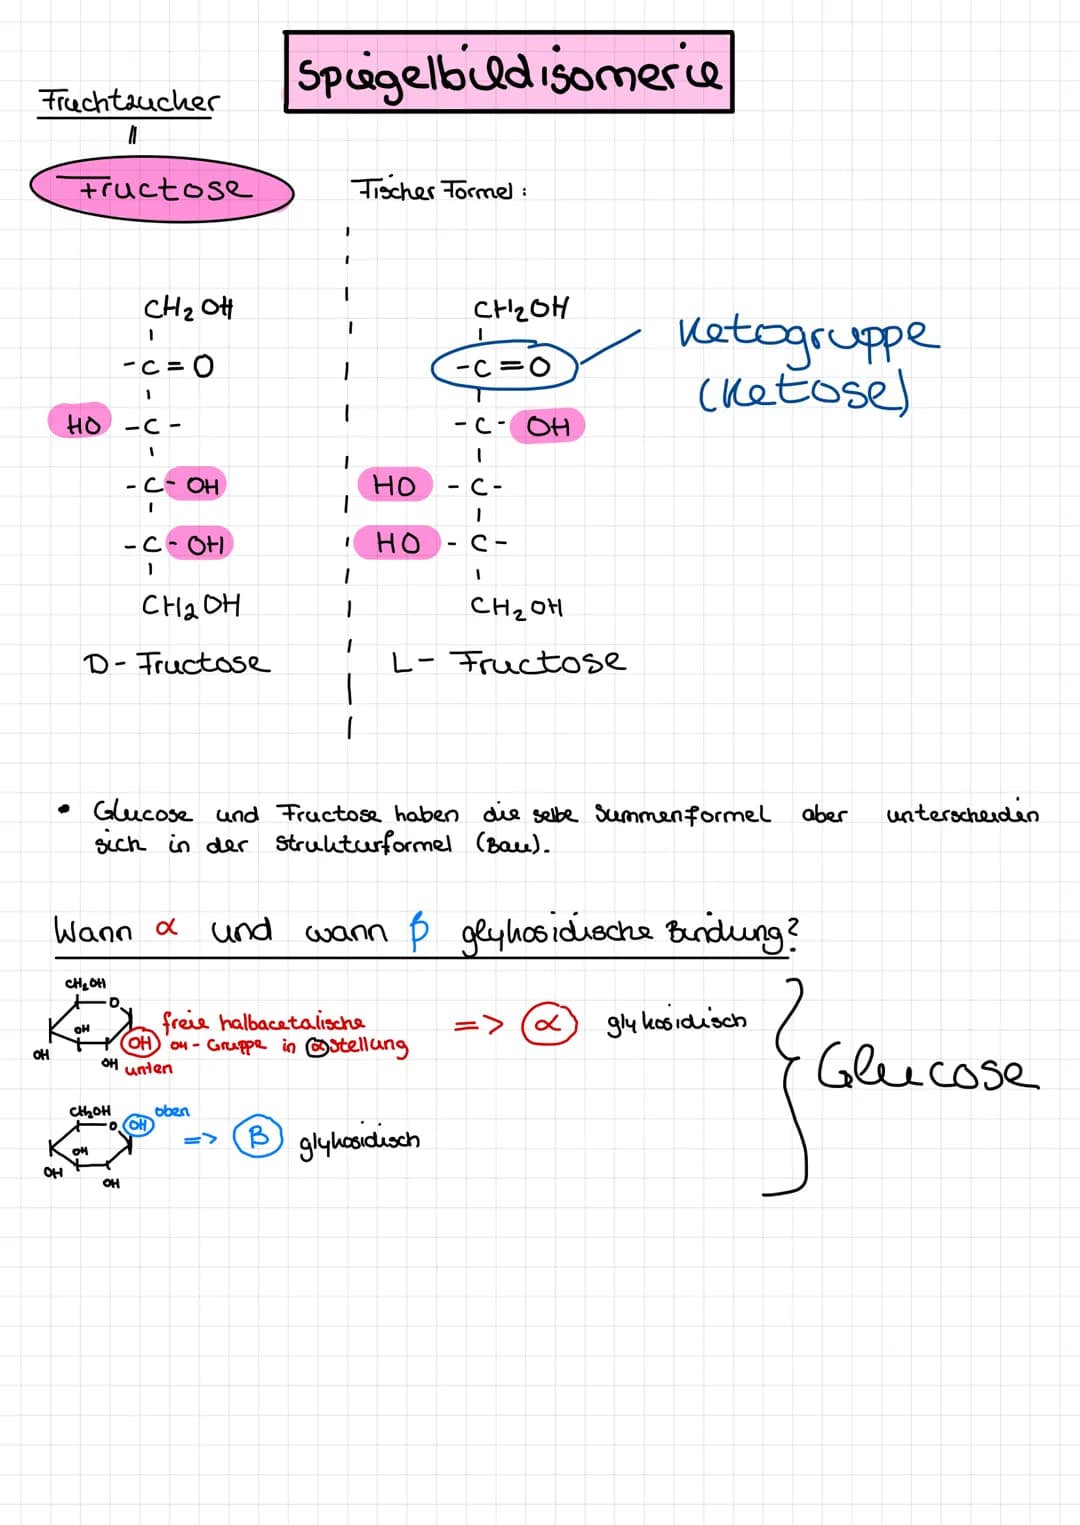 Spiegelbildisomerie
Fruchtzucker
=
Fructose
Fischer Formel :
CH₂OH
-C=O
HO -C-
-C-OH
-C-OH
CH₂OH
D- Fructose
CH₂OH
-C=O
-C-OH
HO -C-
HO -C-
CH₂OH
L- Fructose
Ketogruppe
(Ketose)
• Glucose und Fructose haben die selbe Summenformel aber unterscheiden
sich in der Strukturformel (Bau).
Wann α und wann β glykosidische Bindung?
CH₂OH
O
OH
OH
OH
OH
unten
freie halbacetalische
OH-Gruppe in α Stellung
=> α glykosidisch
CH₂OH
O
OH
oben
OH
OH
OH
=> β glykosidisch
Glucose